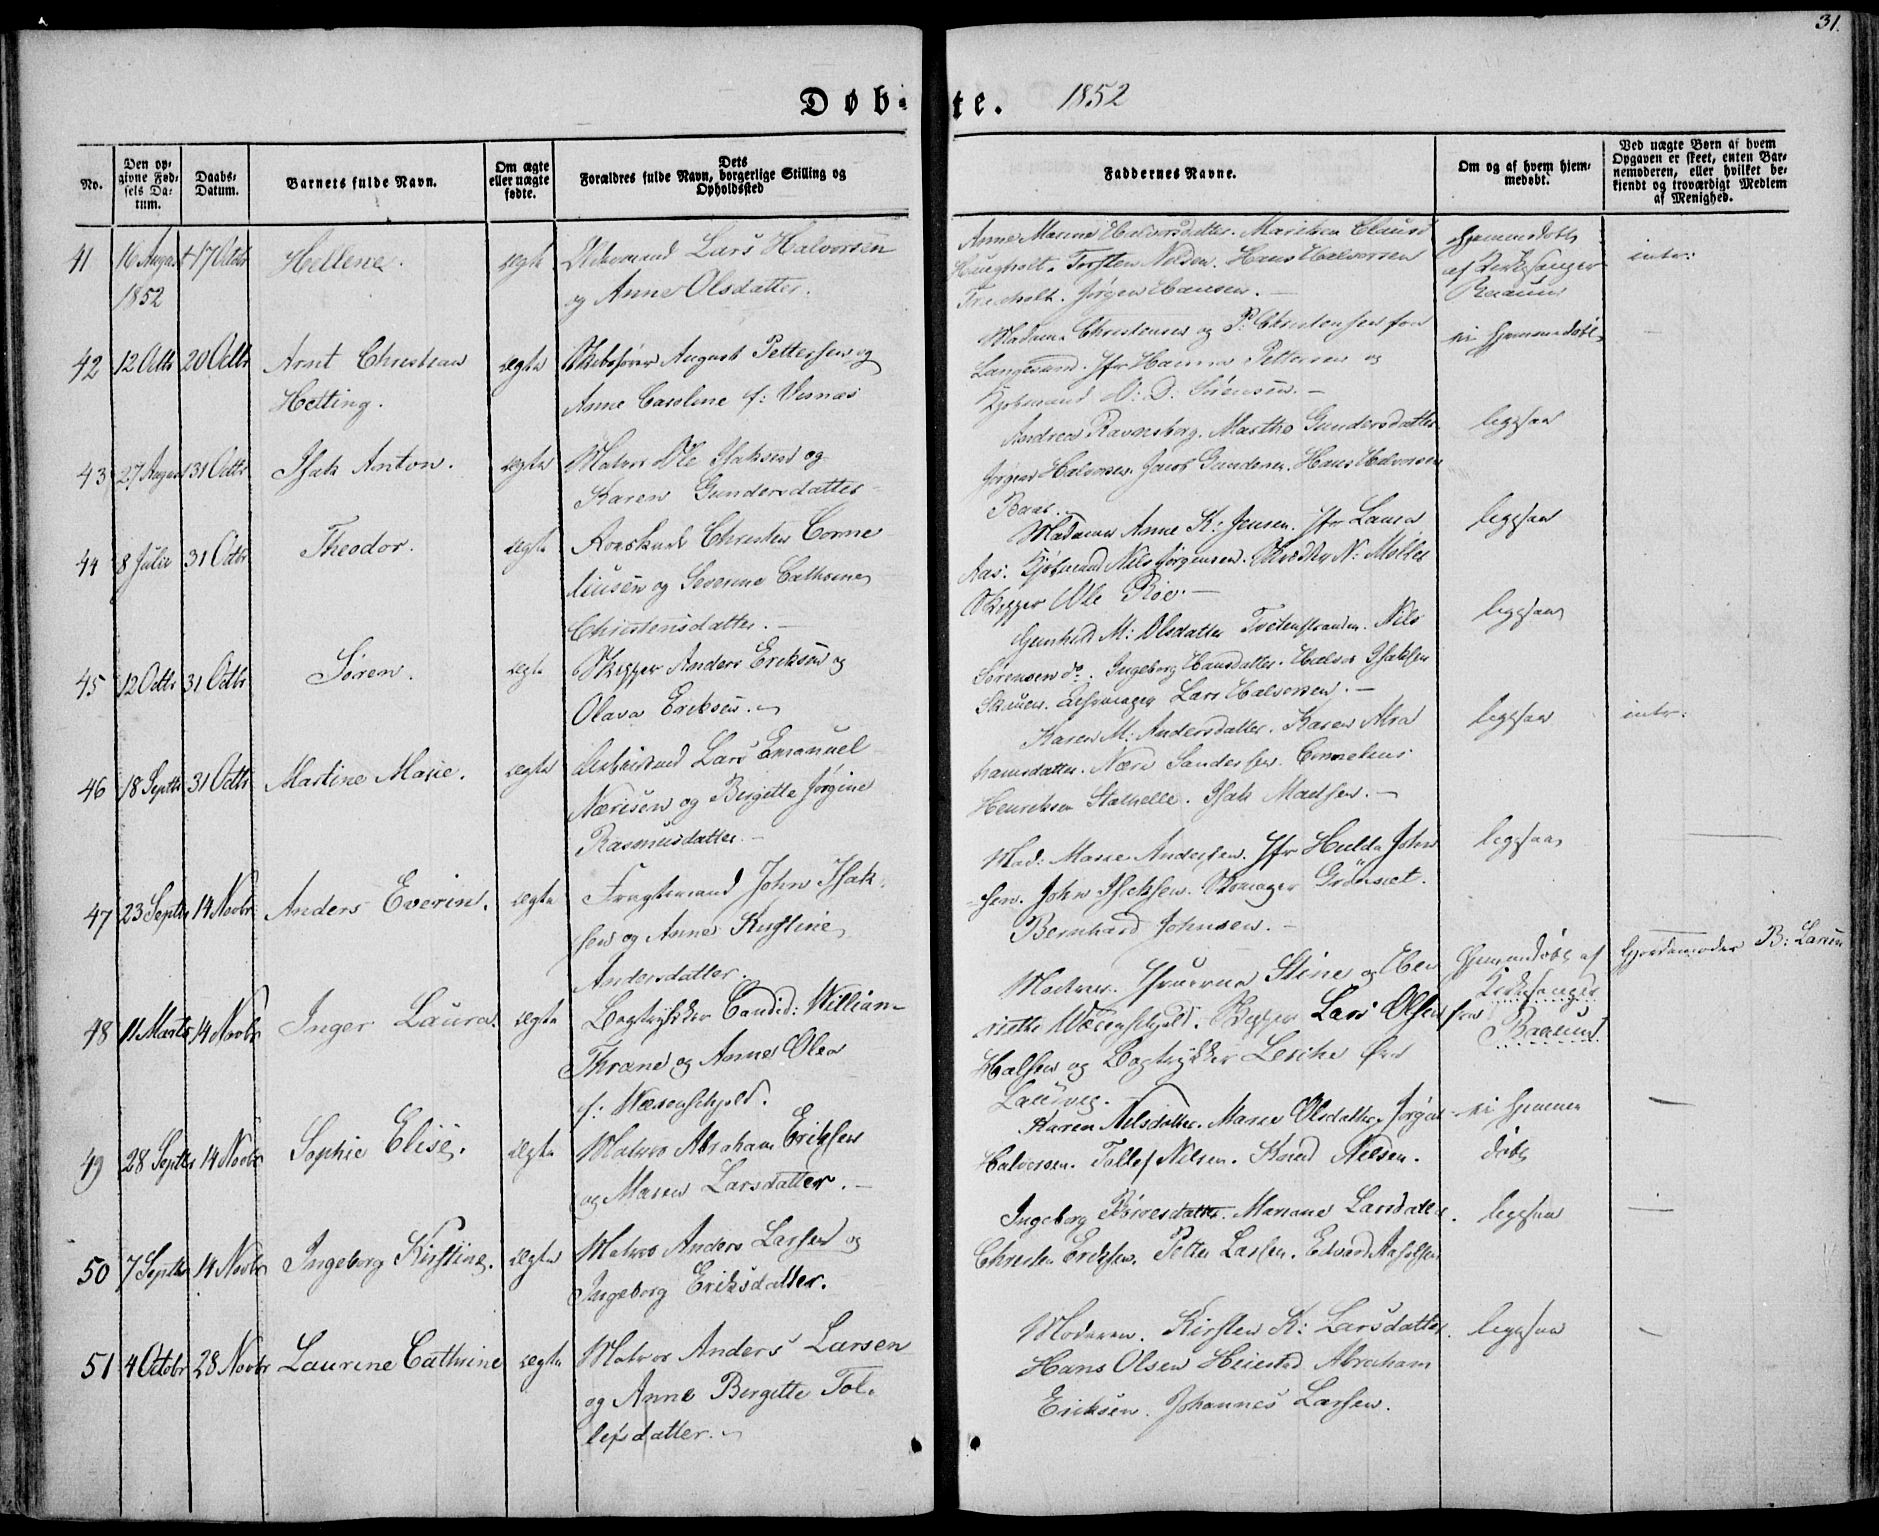 31.
Døbte. 1852
No.
Den opgivne Fødsels Datum.
Daabs-Datum.
Barnets fulde Navn.
Om ægte eller uægte fødte.
Dets Forældres fulde Navn, borgerlige Stilling og Opholdssted
Faddernes Navne.
Om og af hvem hjemmedøbt.
Ved uægte Børn af hvem Opgaven er skeet, enten Barnemoderen, eller hvilket bekiendt og troværdigt Medlem af Menighed.
41 16 August 1852 17 Octbr Hellene. ægte
Lars Halvorsen
og Anne Olsdatter.
Anne Marine Halvorsdatter. Clausd
Torsten Nilsen. Hans Halvorsen
Jørgen Hansen. —
Hjemmedøbt
af Kirkesanger
Baarum
intr:
42 12 Octbr 20 Octbr Arnt Christian
Helting. ægte
Skibsfører August Pettersen og
Anne Caroline f: Vesnæs
Madame Christensen og P. Christensen fra
Langesund. Jfr Hanna Pettersen og
Kjøbmand O: D: Sørensen. —
ei hjemmedøbt
43 27 August 31 Octbr Isak Anton. ægte
Matros Ole Isaksen og
Karen Gundersdatter
Andrea Ravnsborg. Marthe Gundersdatter
Jørgen Halvorsen. Jacob Gundersen. Hans Halvorsen
ligesaa
44 8 Julie 31 Octbr Theodor. ægte
Christen Corne
liusen og Severine Cathrine
Christensdatter. —
Madame Anne K: Jensen. Jfr Laura
Aas. Kjøbmand Nils Jørgensen. N: Møller
Skipper Ole Roe. —
ligesaa
45 12 Octbr 31 Octbr Søren. ægte
Skipper Anders Eriksen og
Olava Eriksen.
Gunhild M: Olsdatter Tvetenstranden. Nils
Sørensen do. Ingeborg Hansdatter. Isaksen
Lars Halvorsen. —
ligesaa
46 18 Septbr 31 Octbr Martine Marie. ægte
Arbeidsmd Lars Emanuel
Næresen og Birgitte Jørgine
Rasmusdatter. —
Karen M: Andersdatter. Karen Abra
hamsdatter. Nære Sandersen. Cornelius
Henriksen Stathelle. Isak Madsen. —
ligesaa
intr:
47 23 Septbr 14 Novbr Anders Everin. ægte
Fragtemand John Isak-
sen og Anne Kirstine
Andersdatter.
Mad: Marie Andersen. Jfr Hulda John
sen. John Isaksen. Grönset.
Bernhard Johnsen. —
ligesaa
48 11 Marts 14 Novbr Inger Laura. ægte
Bogtrykker Candid: William
Thrane og Anne Olea
f: Wærenskjold.
Stine og
riette Wærenskjold. Skipper Lars Olsen fra
Halsen og Bogtrykker Lesche
Laurvig.
Hjemmedøbt af
Kirkesanger
Baarum
Gjordemoder B: Larsen
49 28 Septbr 14 Novbr Sophie Elise. ægte
Matros Abraham Eriksen
og Maren Larsdatter. —
Karen Nilsdatter. Marie Olsdatter. Jørgen
Halvorsen. Tollef Nilsen. Knud Nilsen.
ei hjemme
døbt
50 7 Septbr 14 Novbr Ingeborg Kirstine. ægte
Matros Anders Larsen og
Ingeborg Eriksdatter.
Ingeborg Børresdatter. Mariane Larsdatter.
Christen Eriksen. Petter Larsen. Edvard
ligesaa
51 4 Octobr 28 Novbr Laurine Cathrine ægte
Matros Anders Larsen
og Anne Birgitte Tol-
lefsdatter.
Moderen. Kirsten K: Larsdatter.
Hans Olsen Heiestad Abraham
Eriksen. Johannes Larsen.
ligesaa